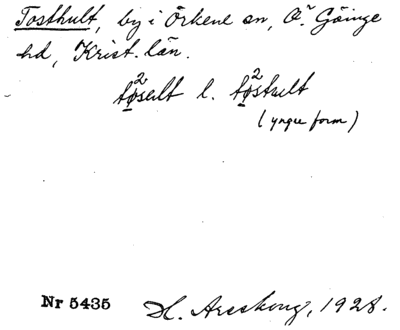 Tosthult, by i Örkene sn, Ö. Göinge
hd, Krist. län.
tøsalt l. tøstult
(yngre form)
Nr 5435 H. Areskoug, 1928.